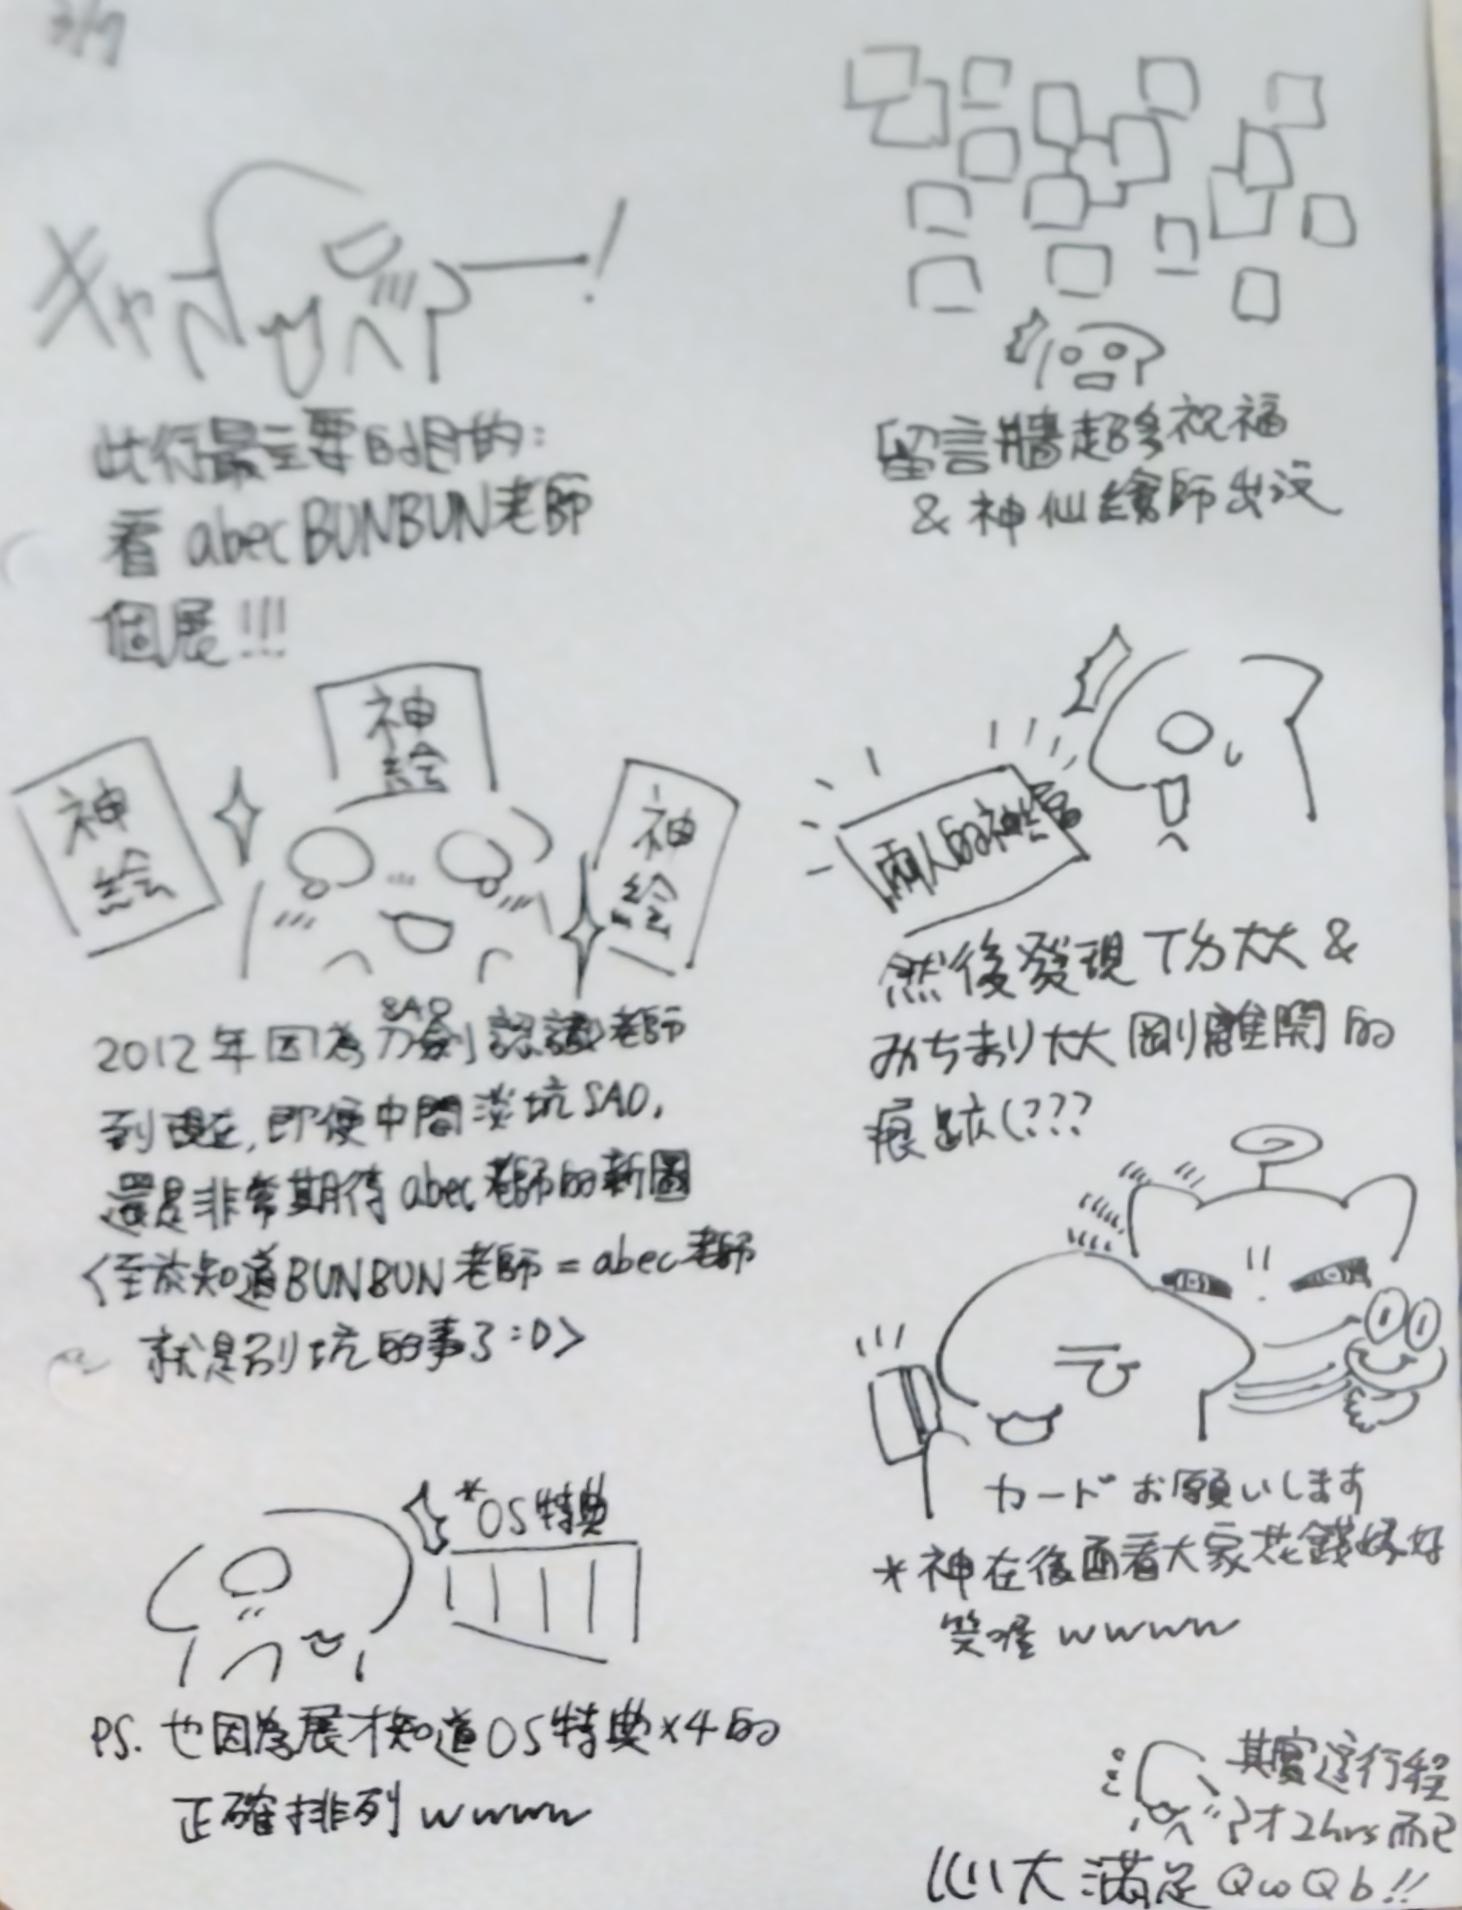 3/7
キャー!
此行最主要的目的:
看 abec BUNBUN老師
個展!!!
神絵
神絵
神絵
SAO
2012年因為刀劍認識老師
到現在,即便中間淡坑SAO,
還是非常期待abec老師的新圖
<至於知道BUNBUN老師=abec老師
就是別坑的事了:D>
*OS特典
PS. 也因為展才知道OS特典x4的
正確排列wwww
留言牆超多祝福
&神仙繪師出沒
兩人的神繪
然後發現 大大 &
みちまり大大 剛離開的
痕跡(???
カードお願いします
*神在後面看大家花錢好好
笑喔wwww
其實這行程
才2hrs而已
心大滿足QwQb!!